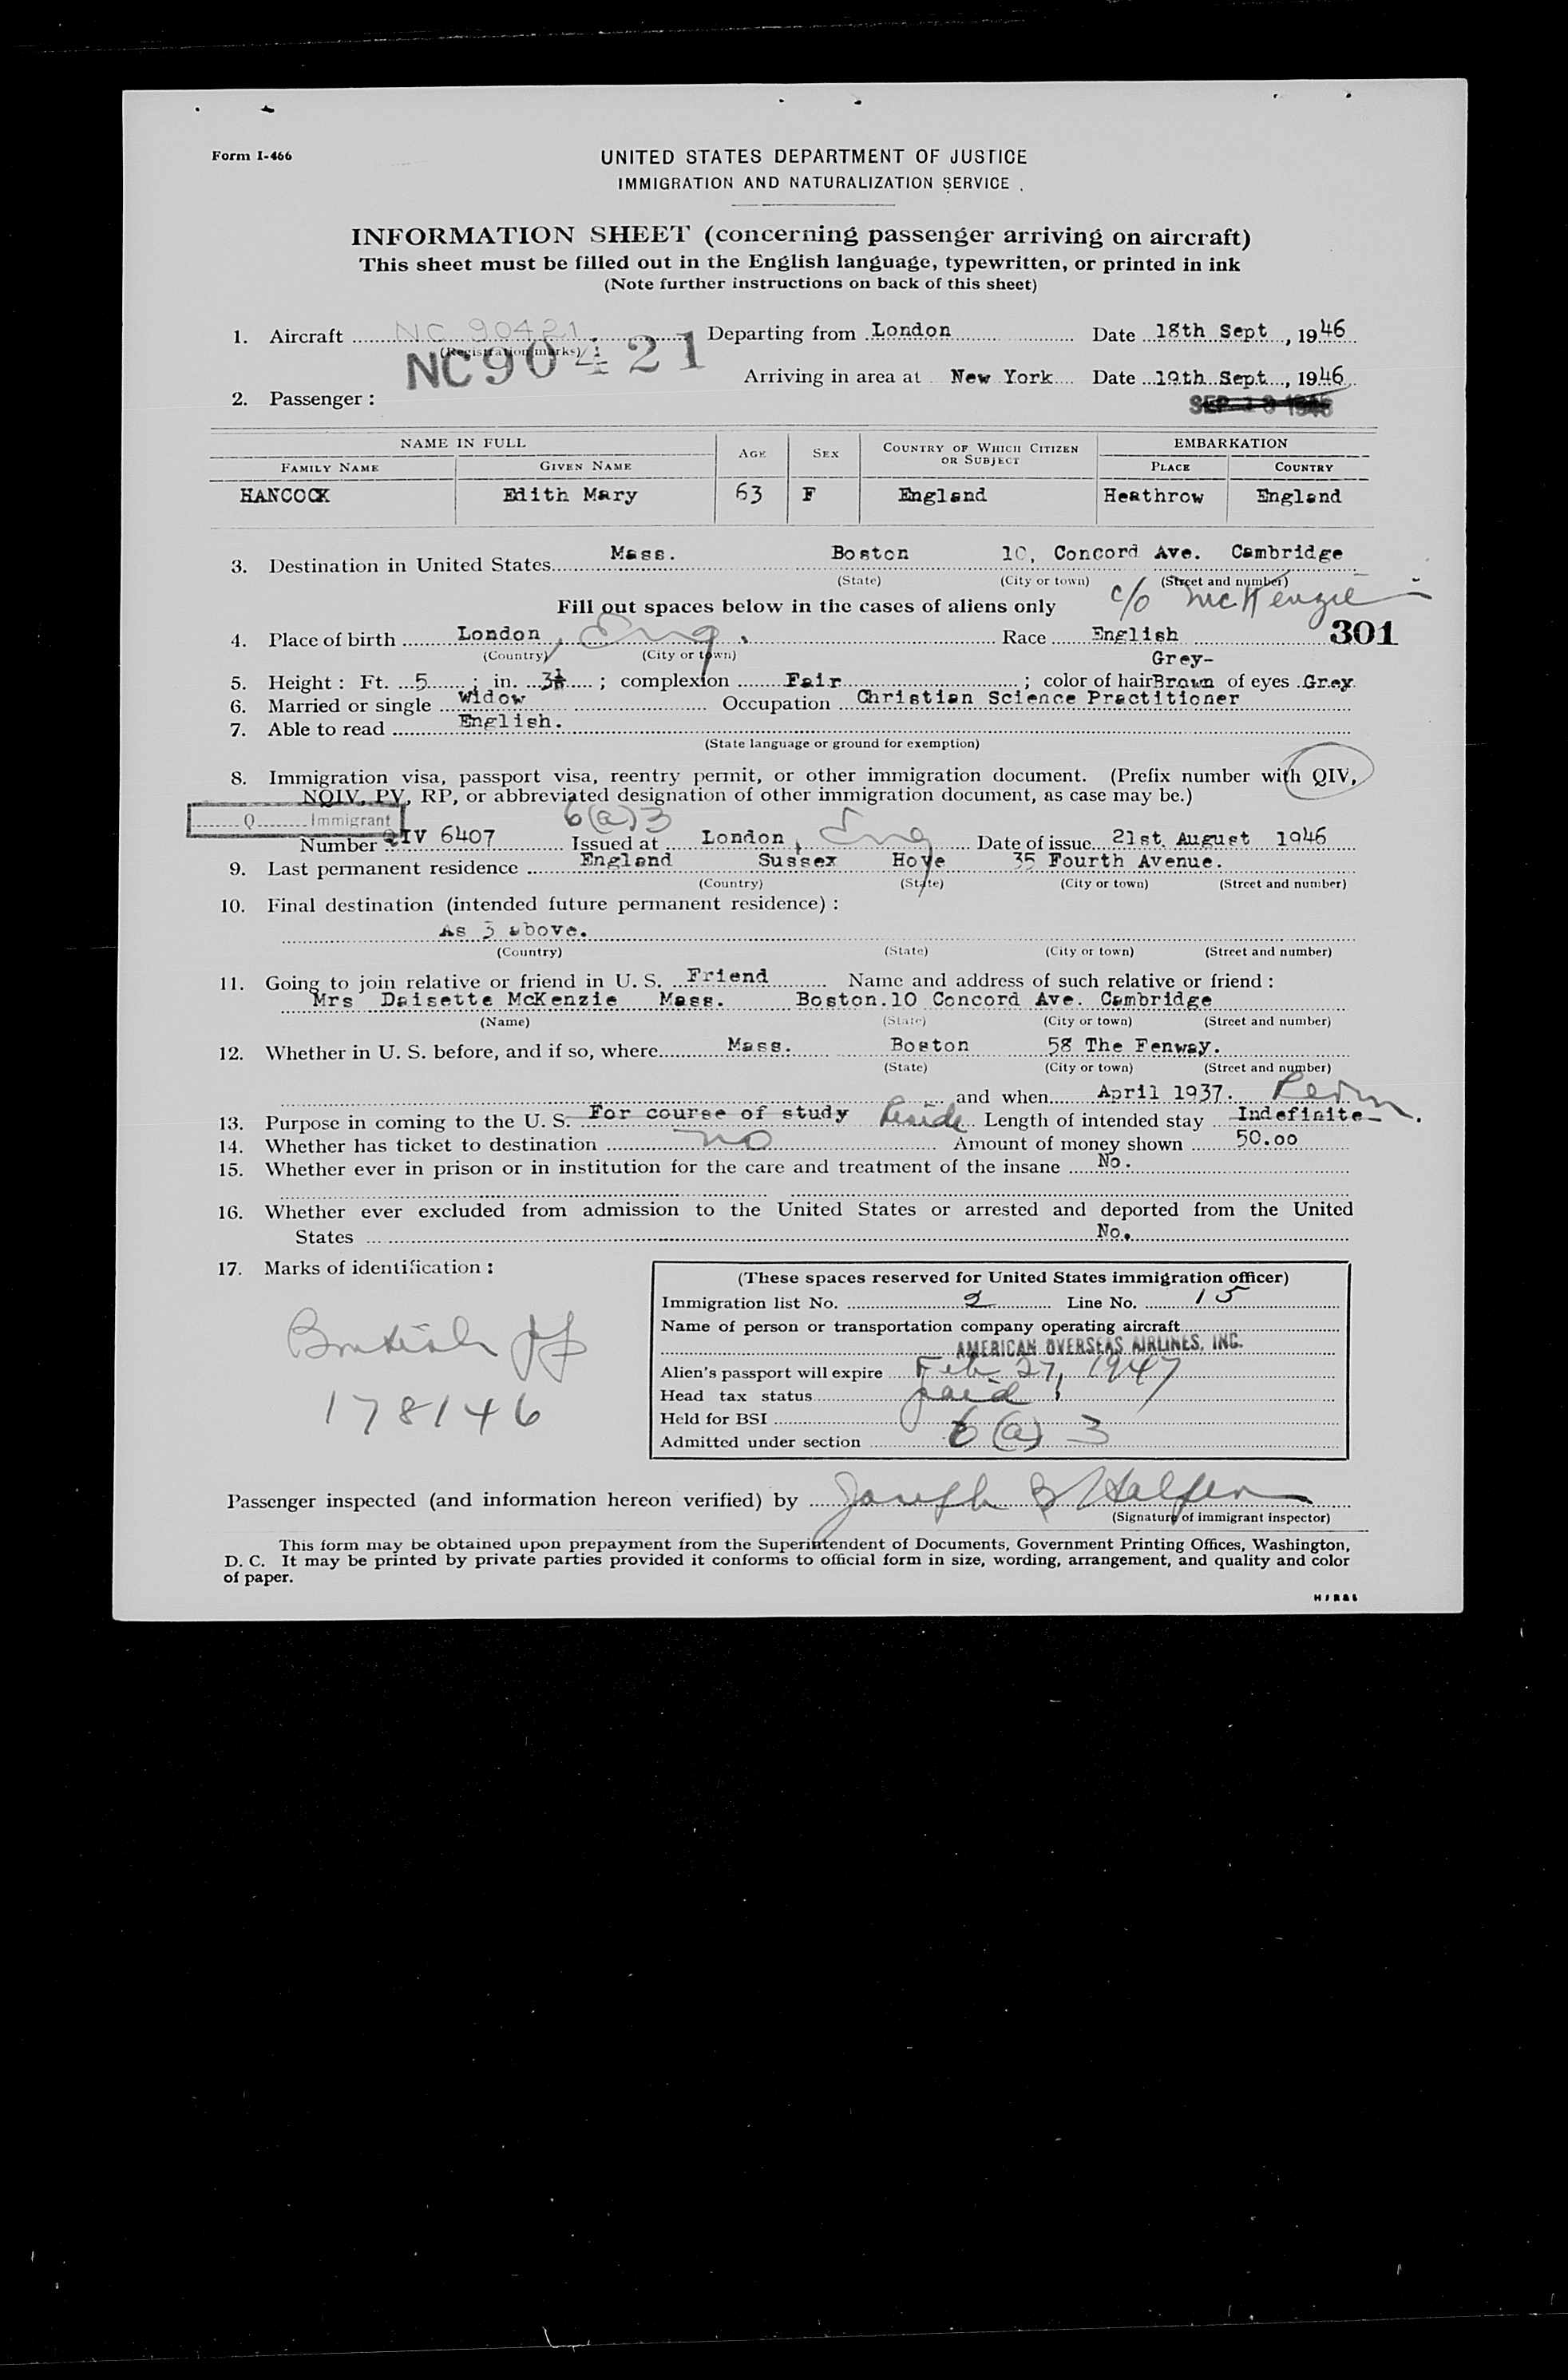 Form I-466
UNITED STATES DEPARTMENT OF JUSTICE
IMMIGRATION AND NATURALIZATION SERVICE
INFORMATION SHEET (concerning passenger arriving on aircraft)
This sheet must be filled out in the English language, typewritten, or printed in ink
(Note further instructions on back of this sheet)
1. Aircraft NC 90421 Departing from London Date 18th Sept, 1946
(Registration marks)
NC90421
Arriving in area at New York Date 19th Sept, 1946
2. Passenger:
NAME IN FULL AGE SEX COUNTRY OF WHICH CITIZEN OR SUBJECT EMBARKATION
FAMILY NAME GIVEN NAME PLACE COUNTRY
HANCOCK Edith Mary 63 F England Heathrow England
3. Destination in United States Mass. Boston 10, Concord Ave. Cambridge
(State) (City or town) (Street and number)
c/o McKenzie
Fill out spaces below in the cases of aliens only
4. Place of birth London, Eng. Race English 301
(Country) (City or town)
Grey-
5. Height: Ft. 5; in. 3½; complexion Fair; color of hair Brown of eyes Grey
6. Married or single Widow Occupation Christian Science Practitioner
7. Able to read English.
(State language or ground for exemption)
8. Immigration visa, passport visa, reentry permit, or other immigration document. (Prefix number with QIV,
NQIV, PV, RP, or abbreviated designation of other immigration document, as case may be.)
Q Immigrant 6(a)3
Number QIV 6407 Issued at London, Eng Date of issue 21st. August 1946
9. Last permanent residence England Sussex Hove 35 Fourth Avenue.
(Country) (State) (City or town) (Street and number)
10. Final destination (intended future permanent residence):
As 3 above.
(Country) (State) (City or town) (Street and number)
11. Going to join relative or friend in U. S. Friend Name and address of such relative or friend:
Mrs Daisette McKenzie Mass. Boston.10 Concord Ave. Cambridge
(Name) (State) (City or town) (Street and number)
12. Whether in U. S. before, and if so, where Mass. Boston 58 The Fenway.
(State) (City or town) (Street and number)
and when April 1937. Perm.
13. Purpose in coming to the U. S. For course of study Reside Length of intended stay Indefinite
14. Whether has ticket to destination no Amount of money shown 50.00
15. Whether ever in prison or in institution for the care and treatment of the insane No.
16. Whether ever excluded from admission to the United States or arrested and deported from the United
States No.
17. Marks of identification:
British
178146
(These spaces reserved for United States immigration officer)
Immigration list No. 2 Line No. 15
Name of person or transportation company operating aircraft
AMERICAN OVERSEAS AIRLINES, INC.
Alien's passport will expire Feb 27, 1947
Head tax status paid
Held for BSI
Admitted under section 6(a) 3
Passenger inspected (and information hereon verified) by Joseph B Halfen
(Signature of immigrant inspector)
This form may be obtained upon prepayment from the Superintendent of Documents, Government Printing Offices, Washington,
D. C. It may be printed by private parties provided it conforms to official form in size, wording, arrangement, and quality and color
of paper.